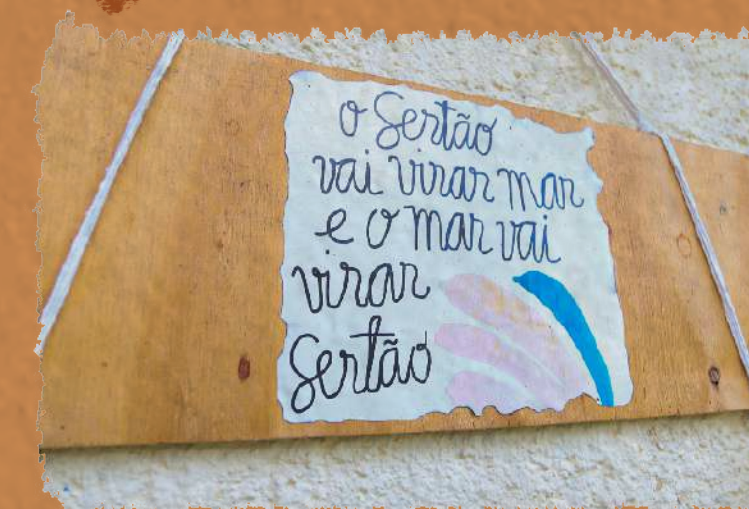 o Sertão
vai virar mar
e o mar vai
virar
Sertão